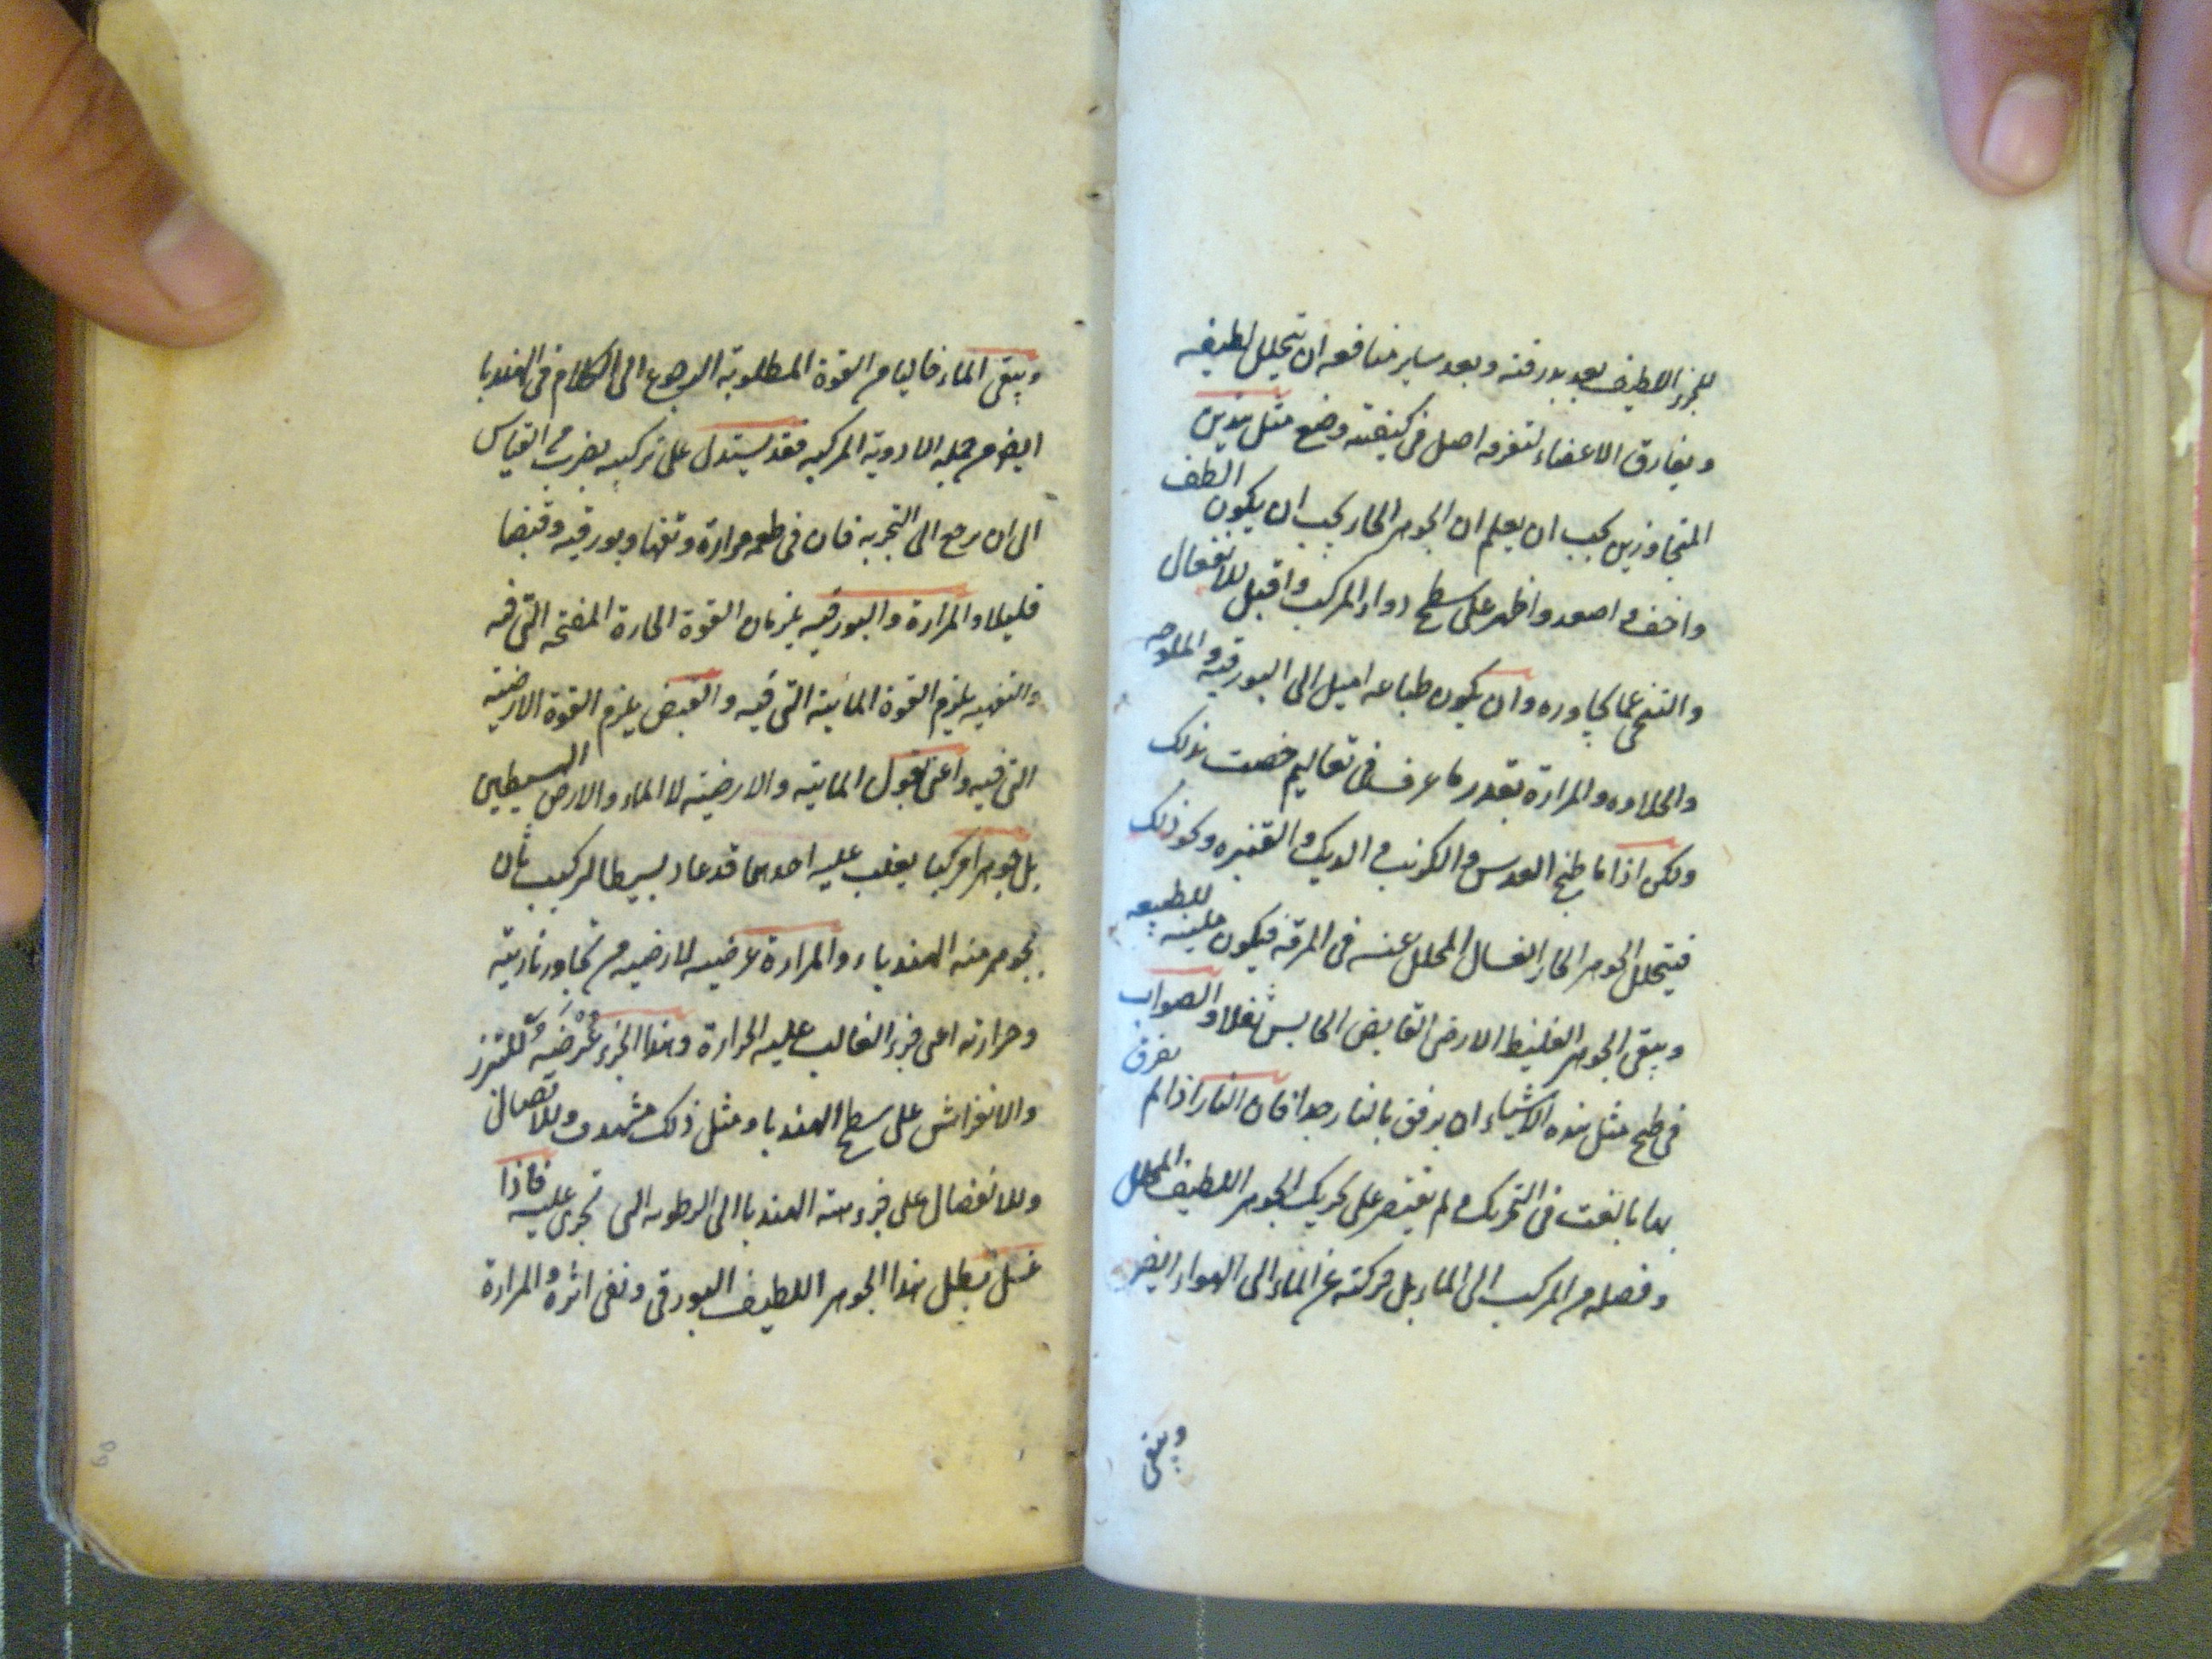 للجزء اللطيف بعد بدرقته و بعد ساير منافعه ان يتحلل لطيفه
و يفارق الاعضاء لتفرقه اصل فى كيفيته وضع مثل هذين
المتجاوزين يجب ان يعلم ان الجوهر الحار يجب ان يكون الطف
واخف و اصعد واظهر على سطح دواء المركب و اقبل للانفعال
والتنحى عما يجاوره وان يكون طباعه اميل الى البورقيه و الملوحه
والحلاوه والمرارة بقدر ما عرف فى تعاليم خصت بذلك
ولكن اذا ما طبخ العدس و الكرنب و الديك و القنبره ونحو ذلك
فيتحلل الجوهر الحار الغسال المحلل عنه فى المرقة فيكون ملينه للطبيعه
ويبقى الجوهر الغليظ الارضى القابض الحابس ثفلا و الصواب
فى طبخ مثل هذه الاشياء ان يرفق بالنار جدا فان النار اذا لم يرفق
بها بالغت فى التحريك و لم يقتصر على تحريك الجوهر اللطيف المحلل
و فصله من المركب الى الماء بل حركته عن الماء الى الهواء ايضا
ويبقى
ويبقى الماء خاليا من القوة المطلوبة الرجوع الى الكلام فى الهندبا
ايضا من جمله الادوية المركبه فقد يستدل على تركيبه بضرب من القياس
الى ان يرجع الى التجربه فان فى طعمه مرارة و تفها و بورقيه و قبضا
قليلا و المرارة و البورقيه يلزمان القوة الحارة المفتحه التى فيه
والتفهيه يلزم القوة المائية التى فيه و القبض يلزم القوة الارضية
التى فيه واعنى بقول المائية والارضية لا الماء والارض البسيطين
بل جوهرا مركبا يغلب عليه احدهما قد عاد بسيطا لتركيب ثان
بجوهر منه الهندباء و المرارة عرضيه لارضيه من تجاور نارية
وحرارته اعنى جزء الغالب عليه الحرارة وهذا الجزء عرضية للتبرز
والانفراش على سطح الهندبا و مثل ذلك مشهور وللاتصال
وللانفصال على جزء منه الهندبا الى الرطوبه التى تجرى عليه فاذا
غسل بطل هذا الجوهر اللطيف البورقى ونفى اثره والمرارة